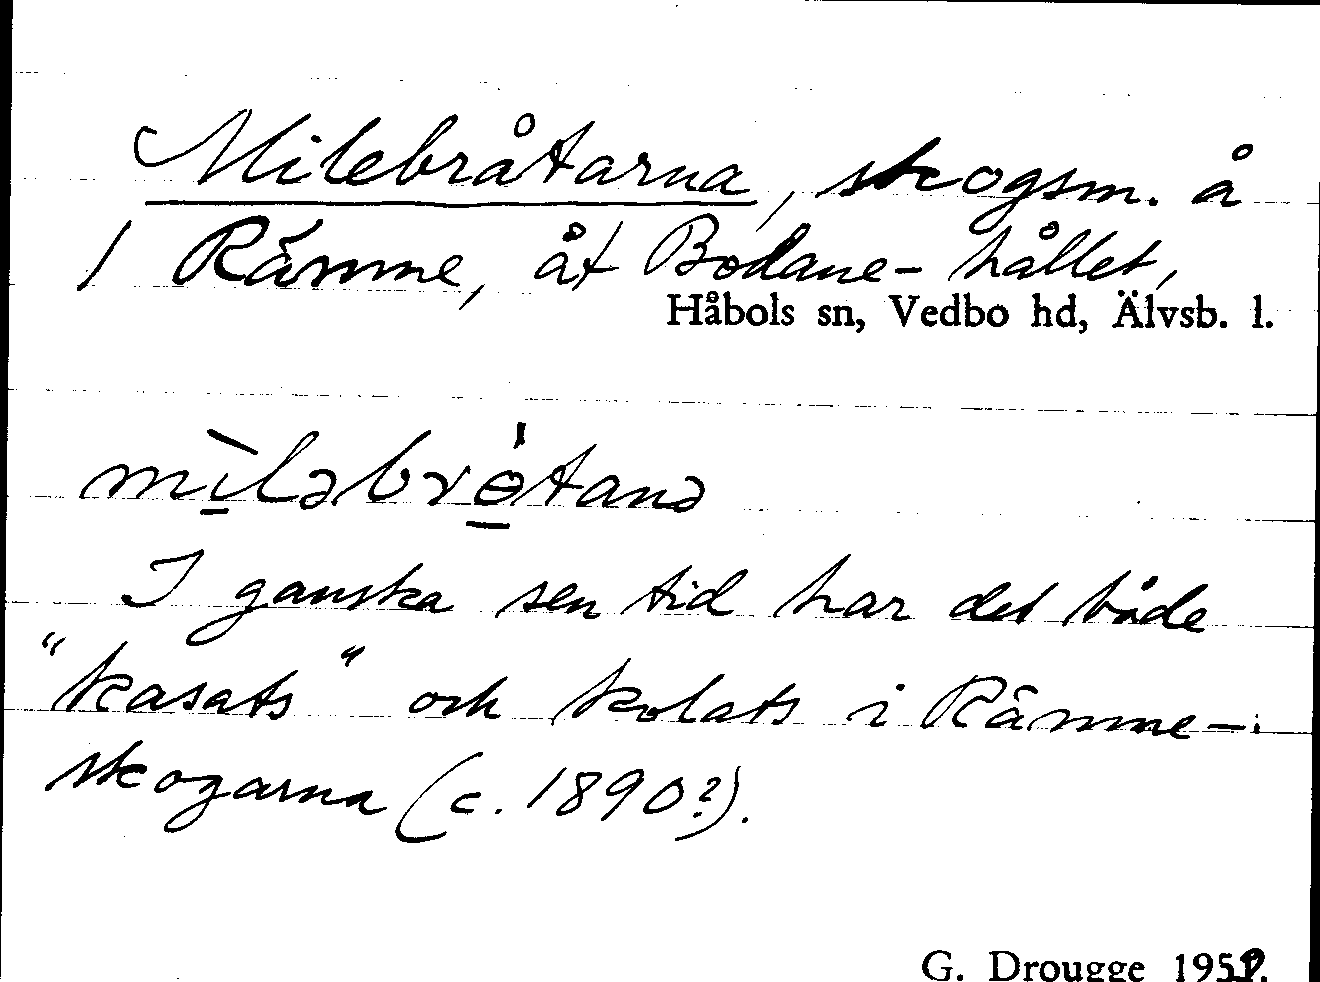 Milebråtarna, skogsm. å
1 Rämne, åt Bodane-hållet,
Håbols sn, Vedbo hd, Älvsb. l.
mìləbrɵ́tanə
I ganska sen tid har det både
"kasats" och kolats i Rämne-
skogarna (c. 1890?).
G. Drougge